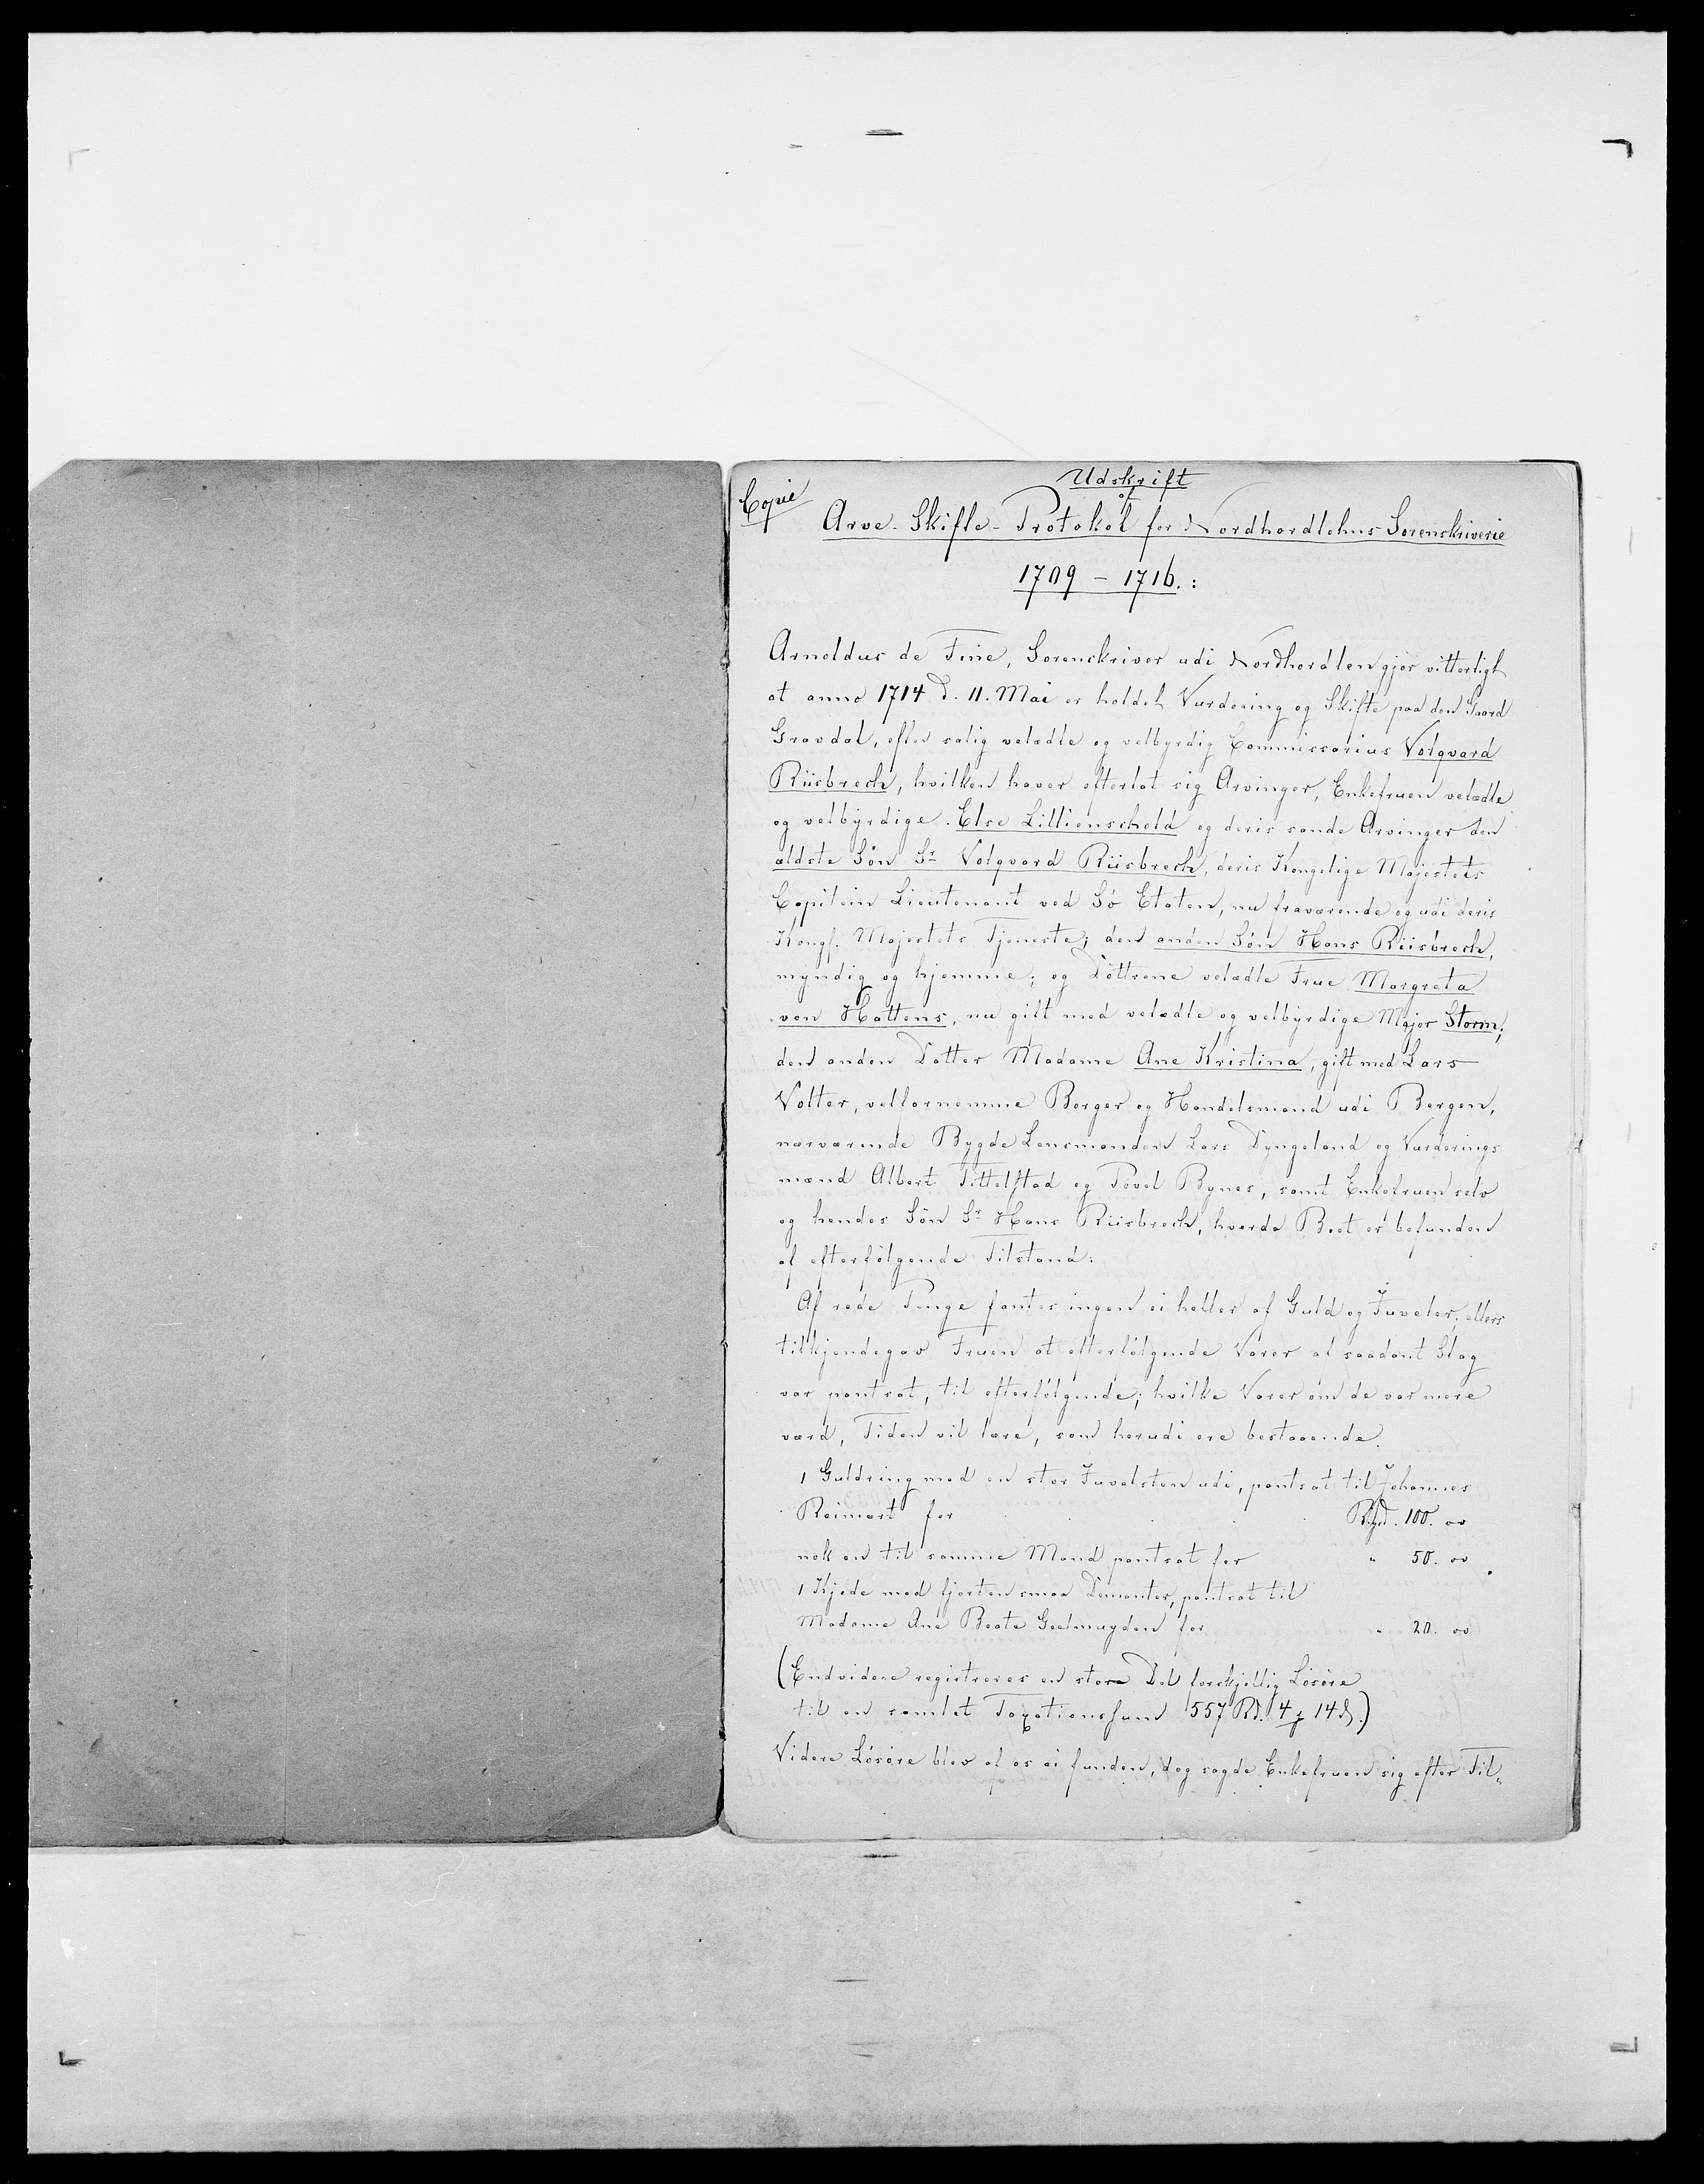 Copie
Udskrift
af
Arve-Skifte-Protokol for Nordhordlehns Sorenskriverie
1709 – 1716. :
Arnoldus de Fine, Sorenskriver udi Nordhordlen gjør vitterligt
at anno 1714 d. 11. Mai er holdet Vurdering og Skifte paa den Gaard
Gravdal, efter salig velædle og velbyrdig Commissarius Volqvard
Riisbrech, hvilken haver efterlat sig Arvinger, Enkefruen velædle
og velbyrdige Else Lillienschold og deris sande Arvinger den
ældste Søn Sr Volqvard Riisbrech, deris Kongelige Majestets
Capitein Lieutenant ved Sø Etaten, nu fraværende og udi deris
Kongl. Majestets Tjeneste; den anden Søn Hans Riisbrech,
myndig og hjemme; og Døttrene velædle Frue Margreta
von Hattens, nu gift med velædle og velbyrdige Major Storm;
den anden Datter Madame Ane Kristina, gift med Lars
Volter, velfornemme Borger og Handelsmand udi Bergen,
nærværende Bygde Lensmanden Lars Dyngeland og Vurderings
mænd Albert Tittelstad og Povel Bynes, samt Enkefruen selv
og hendes Søn Sr Hans Riisbrech, hvorda Boet er befunden
af efterfølgende Tilstand:
Af rede Penge fantes ingen ei heller af Guld og Juveler, ellers
tilkjendegav Fruen at efterfølgende Varer al saadant Slag
var pantsat, til efterfølgende; hvilke Varer om de var mere
værd, Tiden vil lære, som herudi ere bestaaende.
1 Guldring med en stor Juvelsten udi, pantsat til Johannes
Reimert for Rigd. 100. „
nok en til samme Mand pantsat for „ 50. „
1 Kjede med fjorten smaa Demanter, pantsat til
Madame Ane Beate Geelmuyden for „ 20. „
(Endvidere registreres en stor Del forskjellig Løsøre
til en samlet Taxationssum 557 Rd. 4 14 ß.)
Videre Løsøre blev af os ei funden, dog sagde Enkefruen sig efter Til„